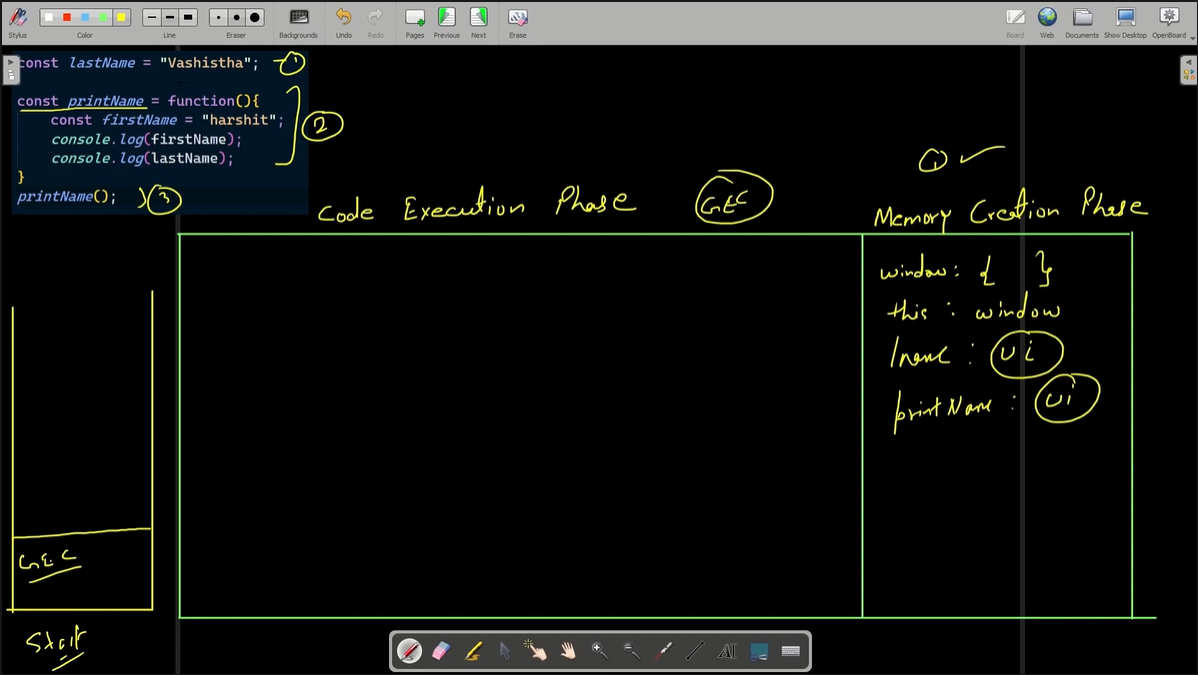 Stylus Color Line Eraser Backgrounds Undo Redo Pages Previous Next Erase Board Web Documents Show Desktop OpenBoard
const lastName = "Vashistha"; 1
const printName = function(){
const firstName = "harshit";
console.log(firstName);
console.log(lastName);
}
2
printName(); 3
1
Code Execution Phase GEC
Memory Creation Phase
window: { }
this : window
lname : ui
printName : ui
GEC
Start
AI